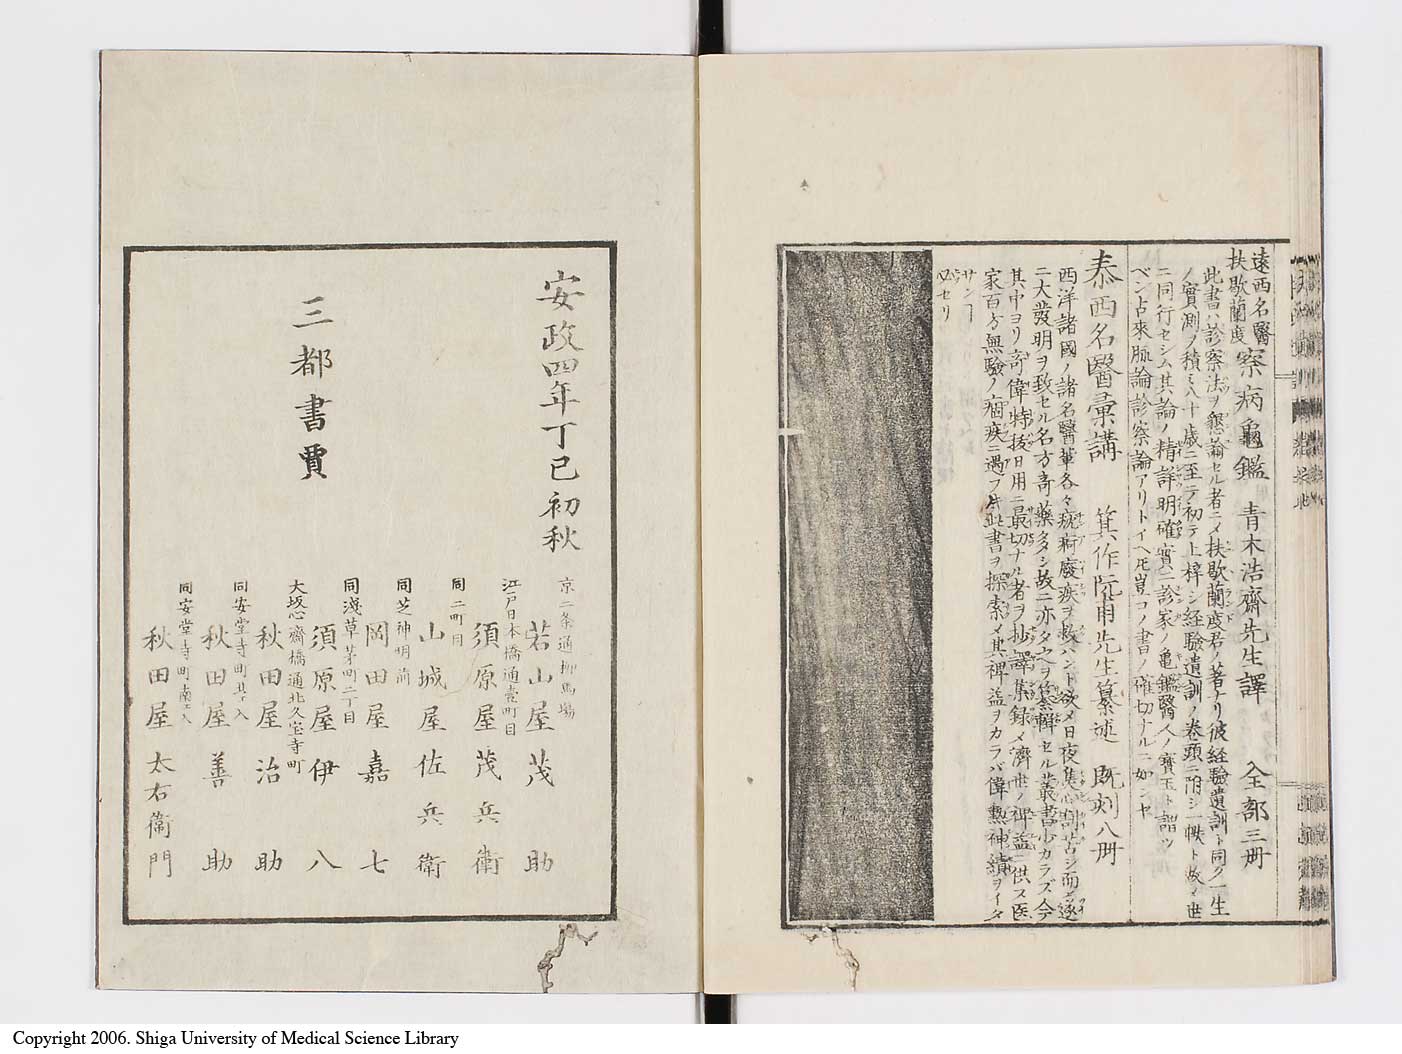 遠西名醫
扶歇蘭度 察病龜鑑 青木浩齋先生譯 全部三冊
此書ハ診察法ヲ懇論セル者ニメ扶歇蘭度君ノ著ナリ彼経驗遺訓ト同ク一生
ノ實測ヲ積ミ八十歳ニ至テ初テ上梓シ経驗遺訓ノ巻頭ニ附シ一帙ト故メ世
ニ同行セシム其論ノ精詳明確實ニ診家ノ亀鑑醫人ノ寶玉ト謂ツ
ベシ占來脈論診察論アリトイヘ𪜈豈コノ書ノ確切ナルニ如ンヤ
泰西名醫彙講 箕作阮甫先生纂述 既刻八冊
西洋諸國ノ諸名醫輩各々痼癈疾ヲ救ハント欲メ日夜焦心シ而シ遂
ニ大發明ヲ致セル名方奇藥多シ故ニ亦タ之ヲ纂輯セル叢書少カラズ今
其中ヨリ奇偉特抜日用ニ最切ナル者ヲ抄譯集録メ濟世ノ裨益ニ供ス医
家百方無驗ノ痼疾ニ遇フ片此書ヲ探索メ其裨益ヲカラバ偉勲神績ヲイタ
サンヿ
必セリ
安政四年丁巳初秋
三都書賈
京二条通柳馬場
若山屋茂助
江戸日本橋通壹町目
須原屋茂兵衛
同二町目
山城屋佐兵衛
同芝神明前
岡田屋嘉七
同淺草茅町二丁目
須原屋伊八
大坂心齋橋通北久宝寺町
秋田屋治助
同安堂寺町北ヱ入
秋田屋善助
同安堂寺町南ヱ入
秋田屋太右衛門
Copyright 2006. Shiga University of Medical Science Library